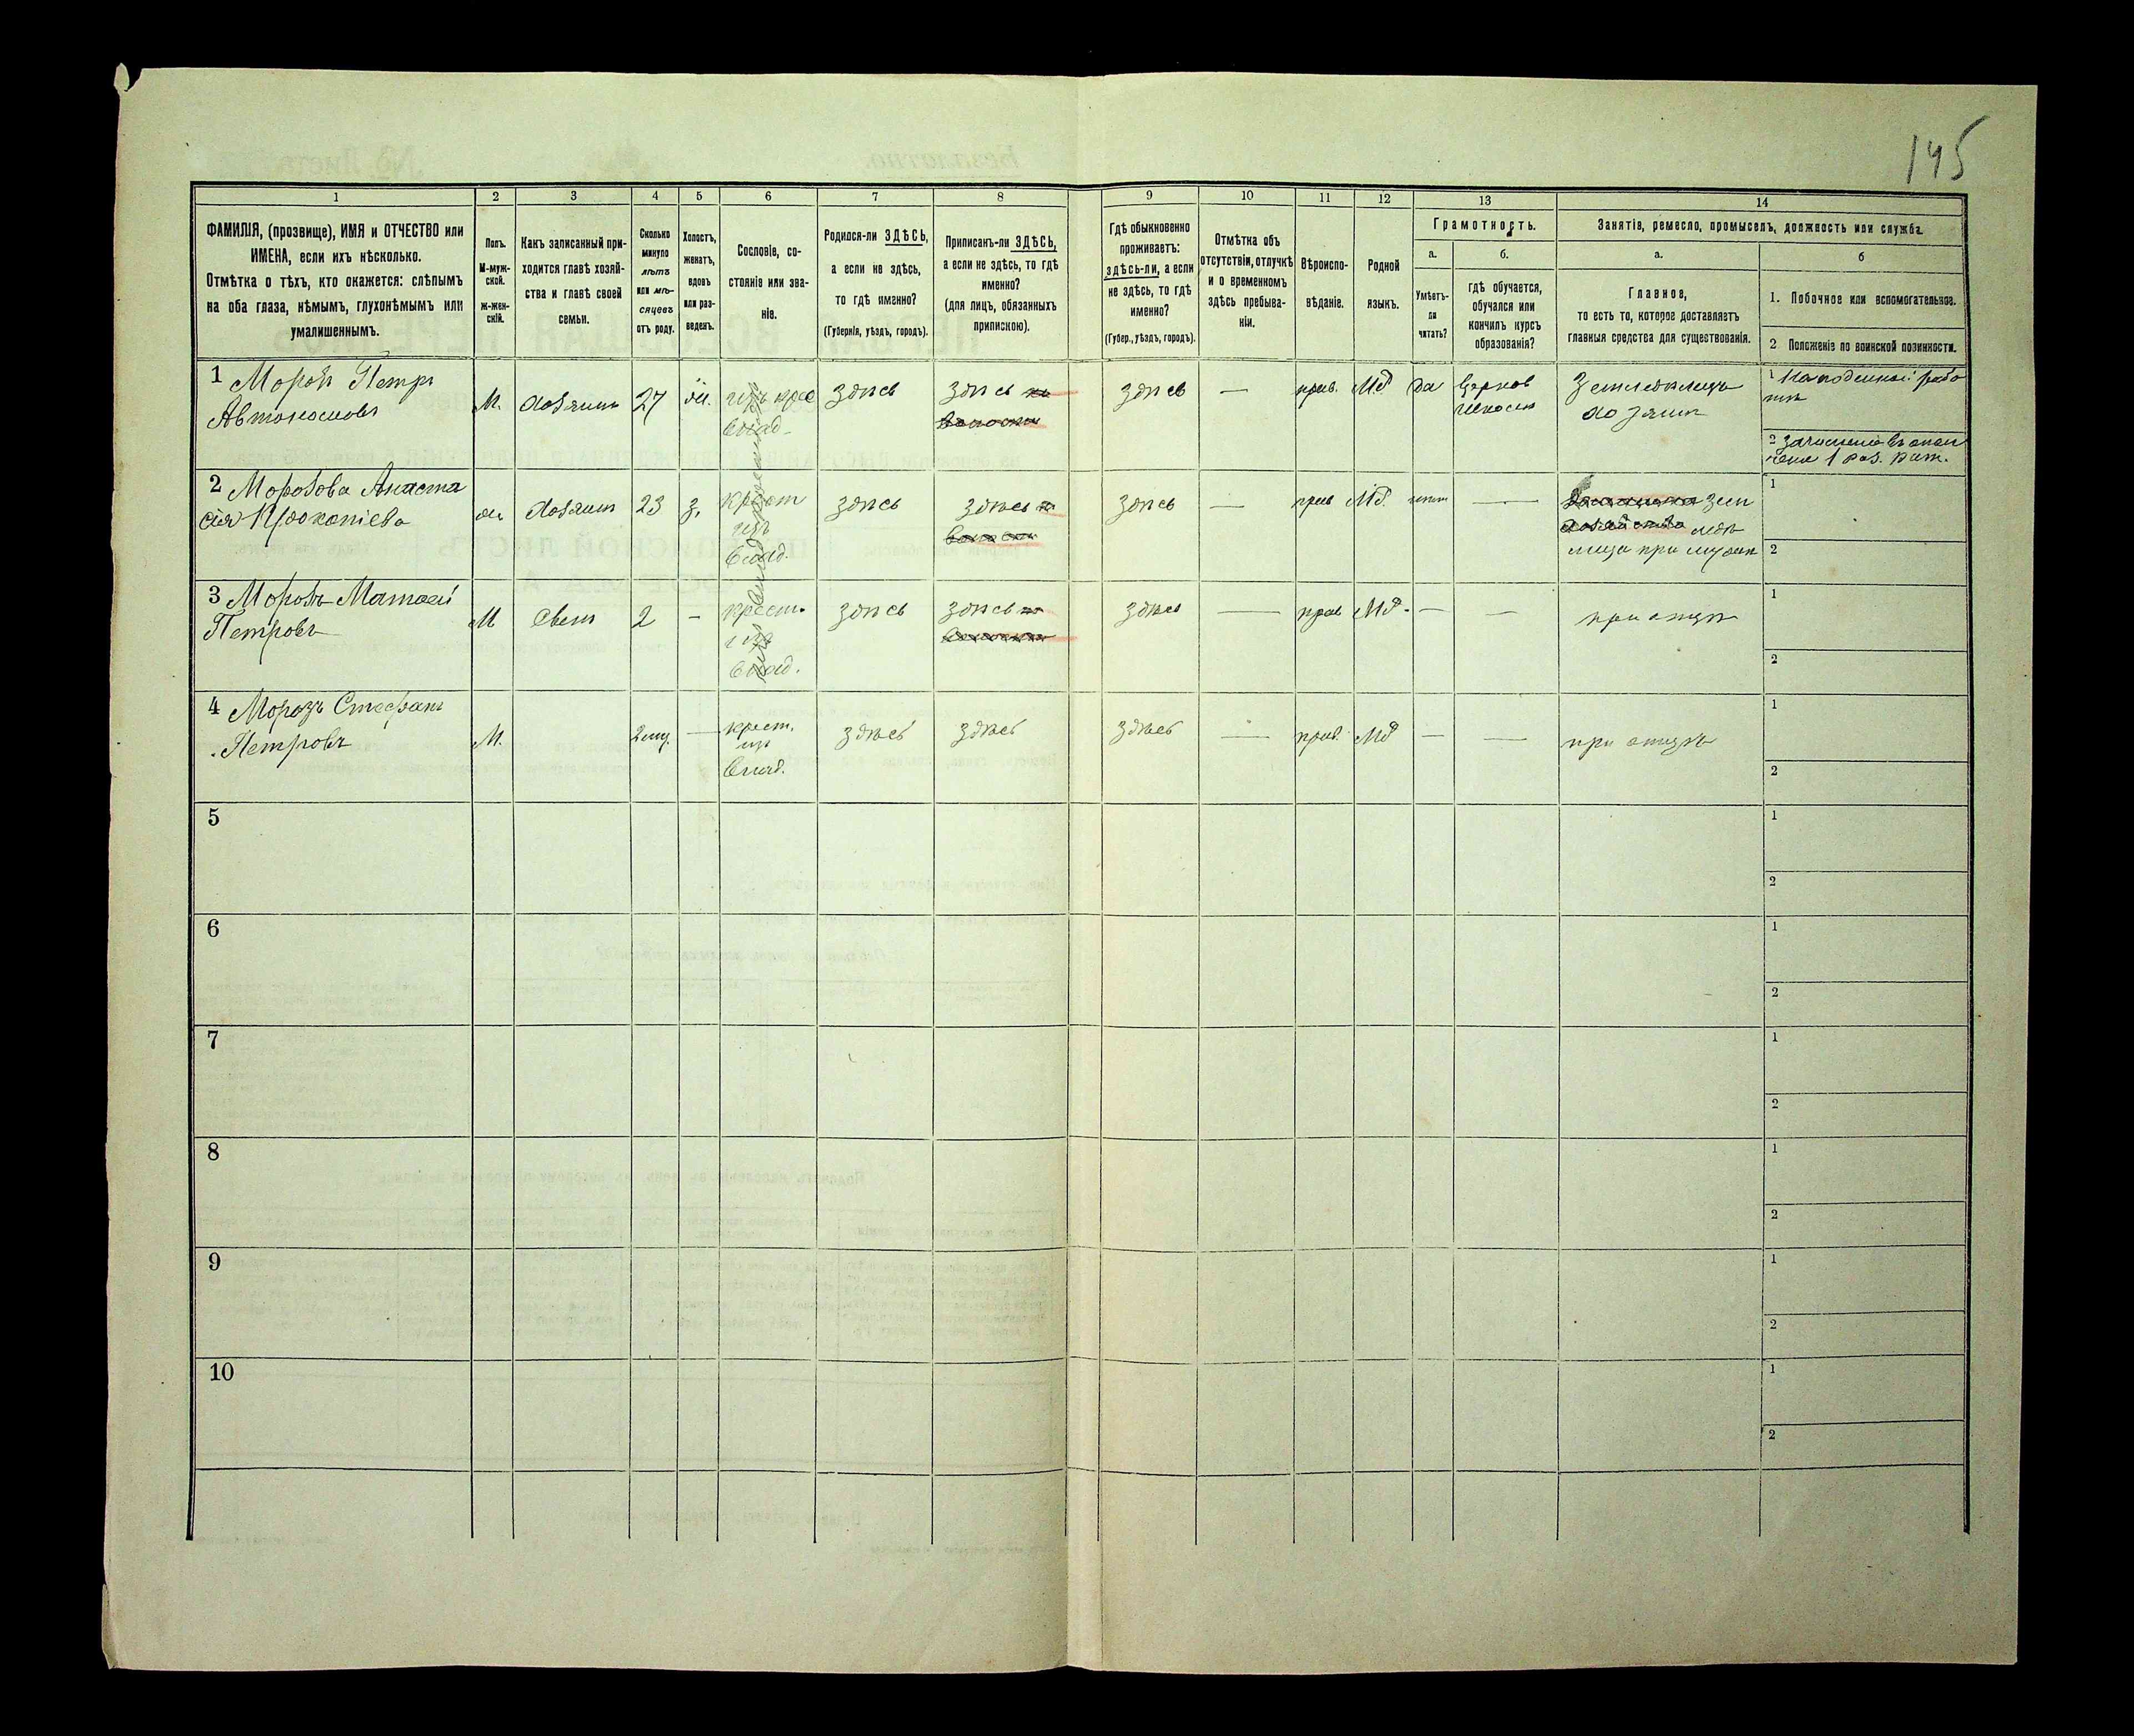 145
1
2
3
4
5
6
7
8
9
10
11
12
13
14
ФАМИЛІЯ, (прозвище), ИМЯ и ОТЧЕСТВО или
ИМЕНА, если ихъ нѣсколько.
Отмѣтка о тѣхъ, кто окажется: слѣпымъ
на оба глаза, нѣмымъ, глухонѣмымъ или
умалишеннымъ.
Полъ.
М-муж-
ской.
ж-жен-
скій.
Какъ записанный при-
ходится главѣ хозяй-
ства и главѣ своей
семьи.
Сколько
минуло
лѣтъ
или мѣ-
сяцевъ
отъ роду.
Холостъ,
женатъ,
вдовъ
или раз-
веденъ.
Сословіе, со-
стояніе или зва-
ніе.
Родился-ли ЗДѢСЬ,
а если не здѣсь,
то гдѣ именно?
(Губернія, уѣздъ, городъ).
Приписанъ-ли ЗДѢСЬ,
а если не здѣсь, то гдѣ
именно?
(для лицъ, обязанныхъ
припискою).
Гдѣ обыкновенно
проживаетъ:
здѣсь-ли, а если
не здѣсь, то гдѣ
именно?
(Губер., уѣздъ, городъ).
Отмѣтка объ
отсутствіи, отлучкѣ
и о временномъ
здѣсь пребыва-
ніи.
Вѣроиспо-
вѣданіе.
Родной
языкъ.
Грамотность.
а.
Умѣетъ-
ли
читать?
б.
гдѣ обучается,
обучался или
кончилъ курсъ
образованія?
Занятіе, ремесло, промыселъ, должность или служба.
а.
Главное,
то есть то, которое доставляетъ
главныя средства для существованія.
б
1. Побочное или вспомогательное.
2 Положеніе по воинской повинности.
1 Морозъ Петръ
Автономовъ
М.
хозяинъ
27
ж.
изъ крес
влад.
здѣсь
здѣсь
здѣсь
—
прав.
Мд
да
Церков
школа
Земледѣлецъ
хозяинъ
1 На поденной рабо
2 Зачисленъ въ опол
чен. 1 раз. рат.
2 Морозова Анаста
сія Прокопіева
ж
хозяин
23
з.
крест
изъ
влад.
здѣсь
здѣсь
здѣсь
—
прав
Мд.
—
зем
ледѣ
лица при мужѣ
1
2
3 Морозъ Матвей
Петровъ
М
Сынъ
2
-
крест.
изъ
влад.
здѣсь
здѣсь
здѣсь
—
прав
Мд.
—
—
при отцѣ
1
2
4 Морозъ Стефанъ
Петровъ
М.
2 мц.
—
крест.
изъ
влад.
здѣсь
здѣсь
здѣсь
—
прав.
Мд
—
—
при отцѣ
1
2
5
1
2
6
1
2
7
1
2
8
1
2
9
1
2
10
1
2